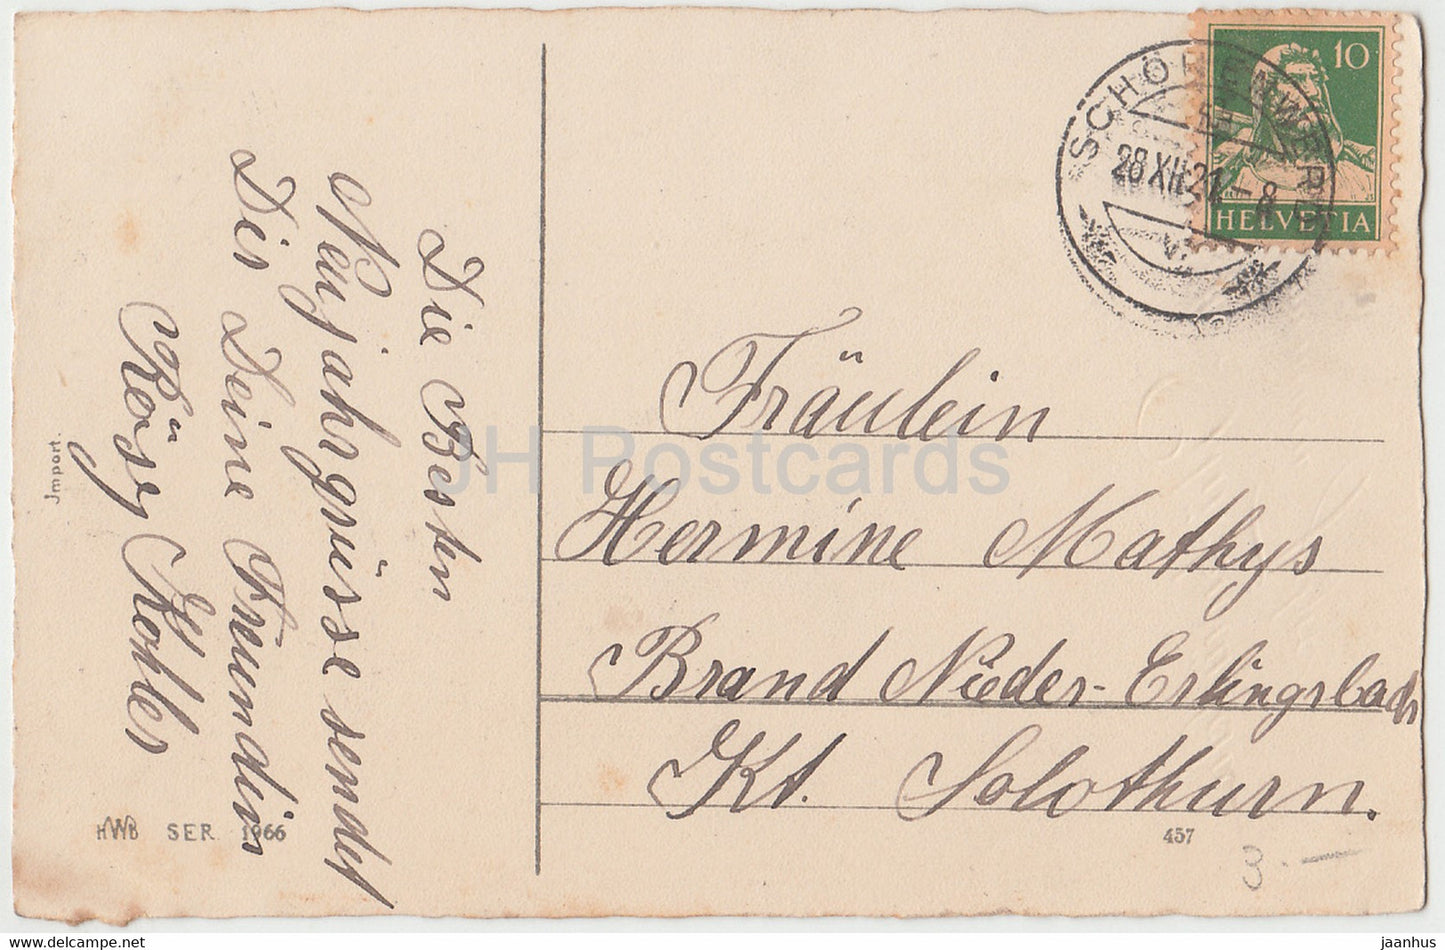 Die Besten
Neujahrsgrüsse sendet
Dir Deine Freundin
Rösy Kohler
Jmport.
HWB SER. 1966
10
HELVETIA
SCHÖNENWERD
28 XII 21 – 8
Fräulein
Hermine Mathys
Brand Nieder-Erlinsbach
Kt. Solothurn.
457
3.—
JH Postcards
jaanhus@yahoo.com